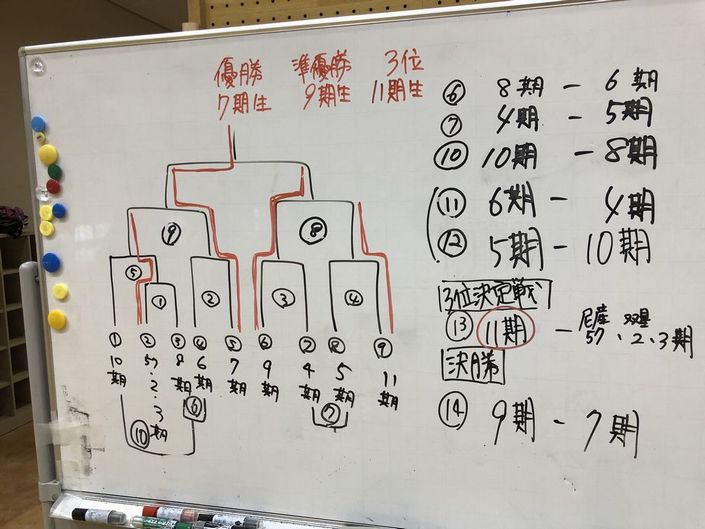 優勝 準優勝 3位
7期生 9期生 11期生
⑥ 8期 － 6期
⑦ 4期 － 5期
⑩ 10期 － 8期
⑪ 6期 － 4期
⑫ 5期 － 10期
3位決定戦
⑬ 11期 － 尼産 双星
57、2、3期
決勝
⑭ 9期 － 7期
⑨ ⑧
⑤ ① ② ③ ④
① ② ③ ④ ⑤ ⑥ ⑦ ⑧ ⑨
10期
57・2・3期
8期
6期
7期
9期
4期
5期
11期
⑥ ⑦
⑩